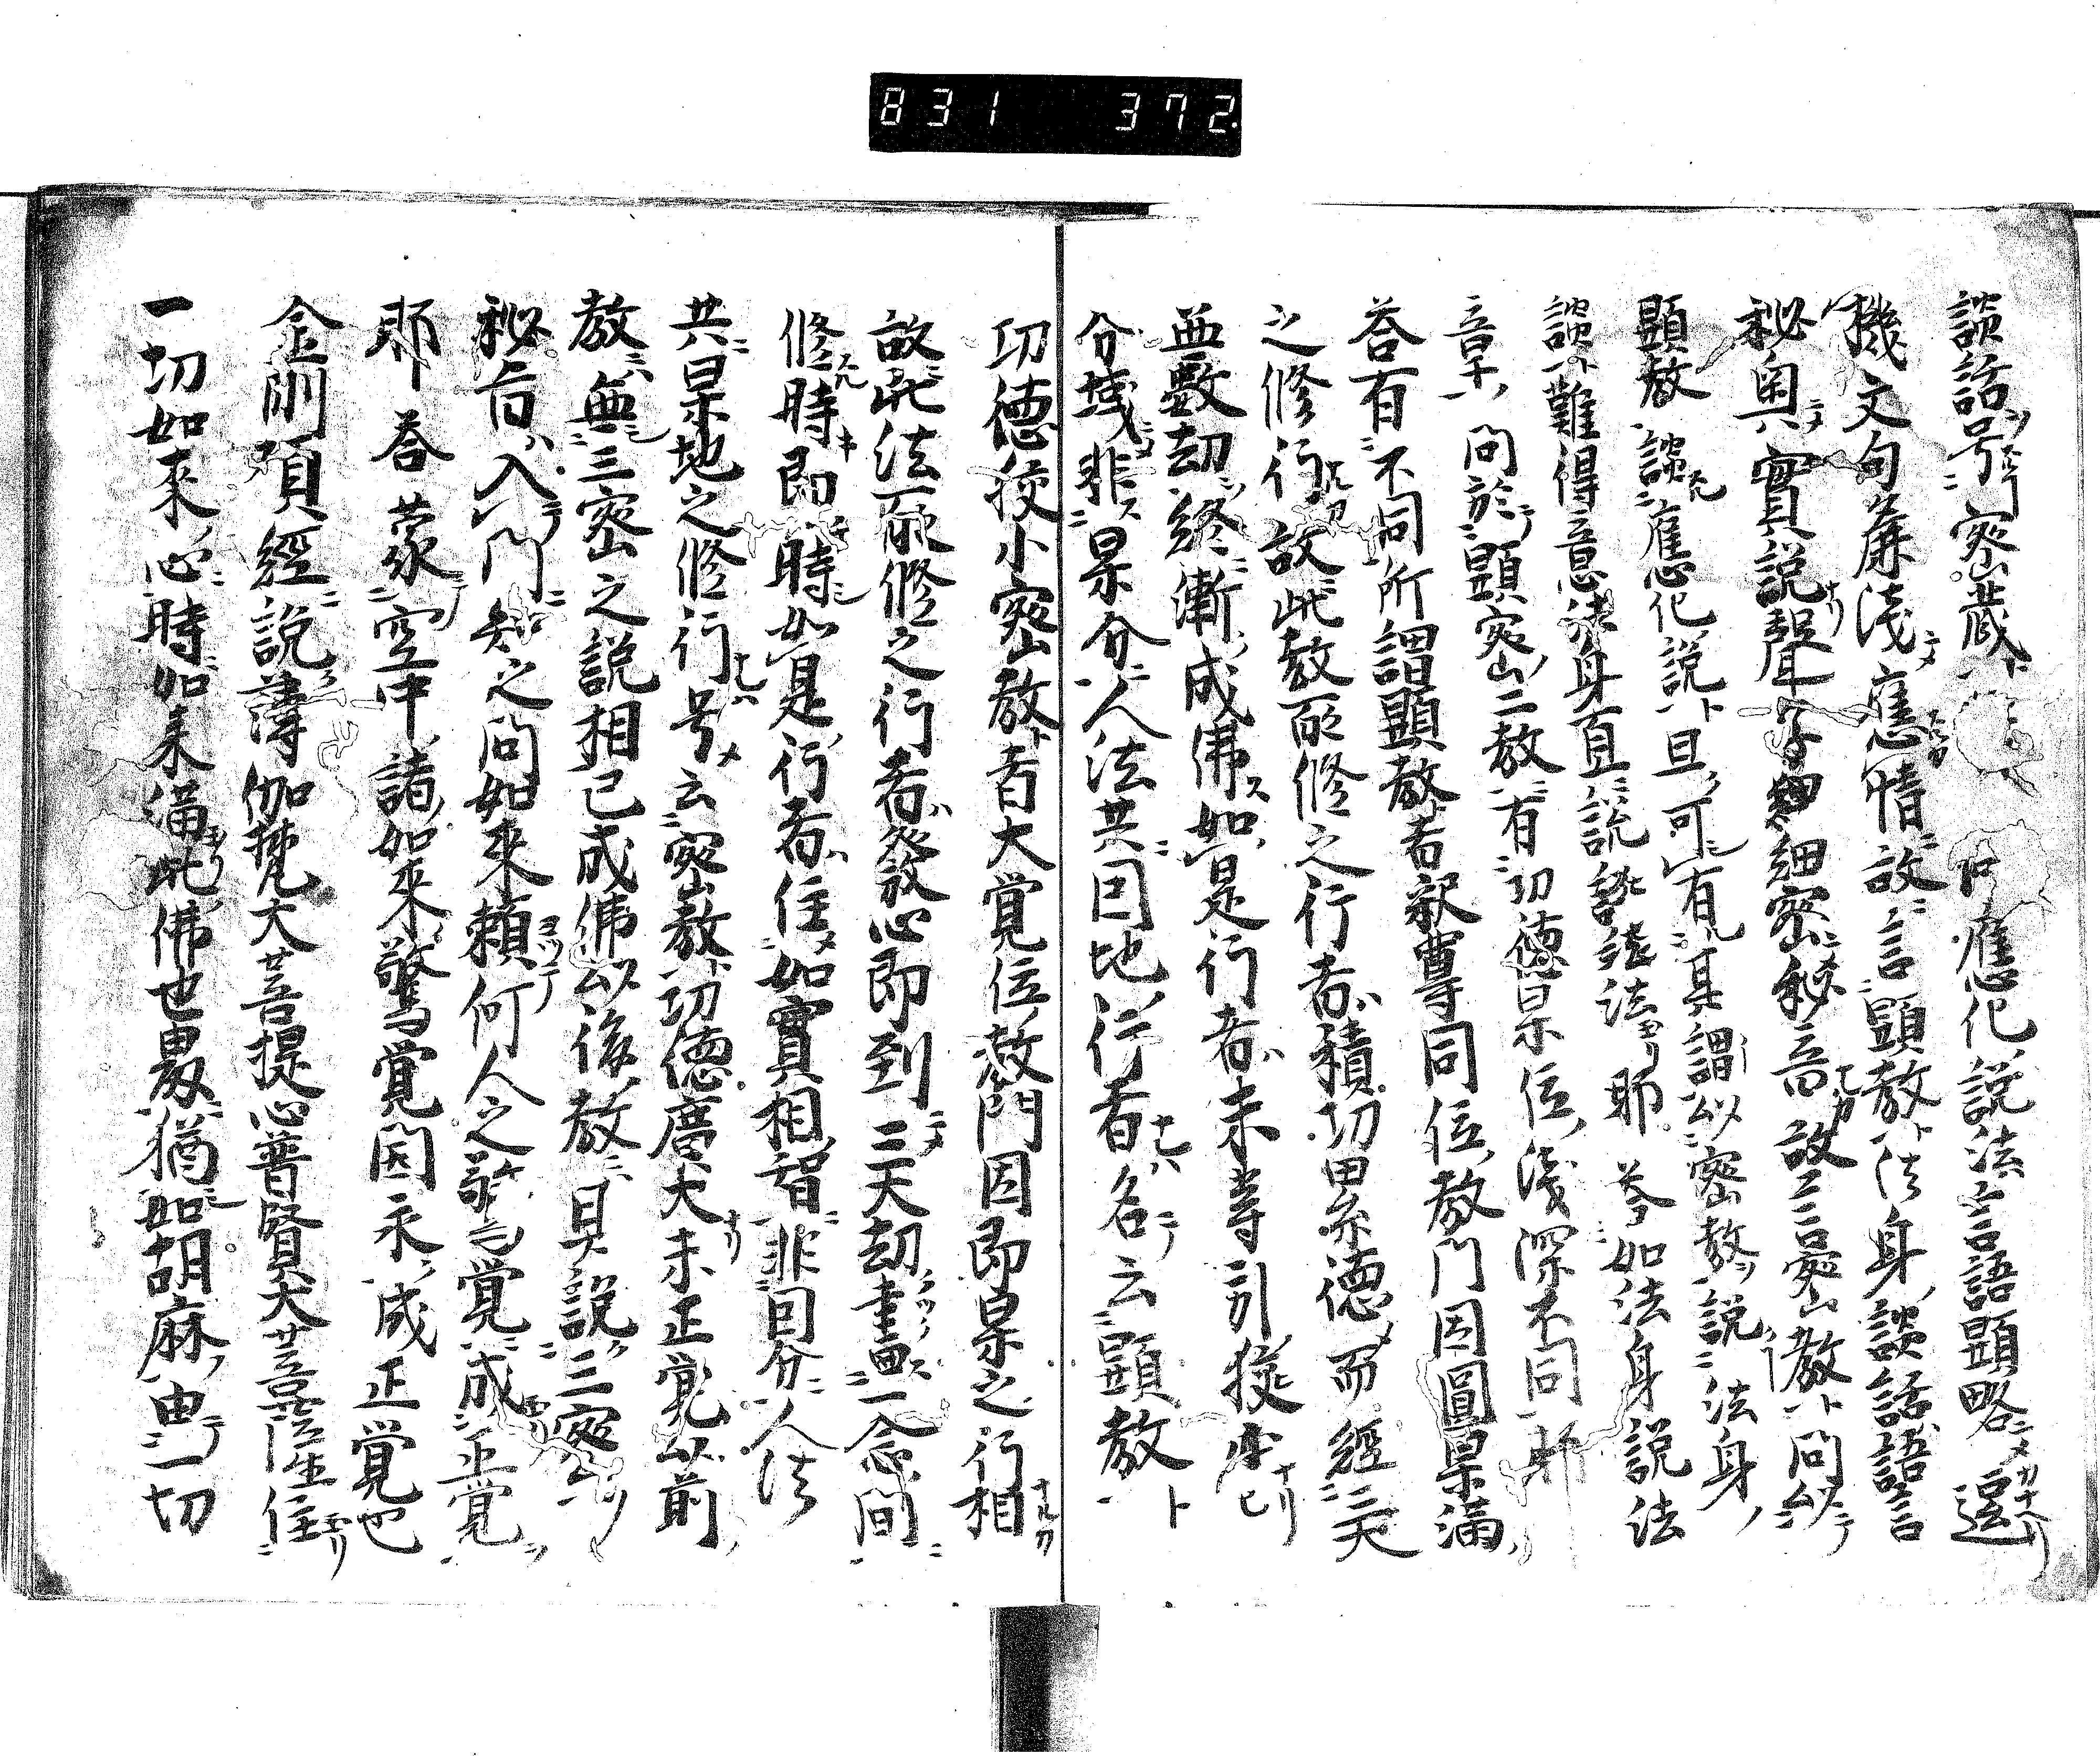 831 372.
談話号密蔵ト 應化説法言語顕略逗
機文句麁淺應情故言顕教法身談話語言
秘奥實説聲字細密秘音故言密教ト問以
顕教談應化説ト旦可有其謂以密教説法身
談難得意法身直説談法耶 答如法身説法
音 問於顕密二教有功德果位淺深不同耶
答有不同所謂顕教者釈尊同位教門因圓果滿
之修行故此教所修之行者積功累德而經三大
無數劫終漸成佛如是行者未
分域非果分人法共因地行者名云顕教ト
功德 密教者大覚位教門因即果之行相
故此法所修之行者發心即到三大劫 一念間
修時即時如是行者住如實相智非因分人法
共果地之修行号云密教功德廣大未正覚以前
教無三密之説相已成佛以後教具説三密
秘旨入門知之問如來頼何人之驚覚成正覚
耶 答蒙空中諸如來驚覚因永成正覚也
金剛頂經説薄伽梵大菩提心普賢大菩薩住
一切如來心時如來滿此佛世界猶如胡麻由一切